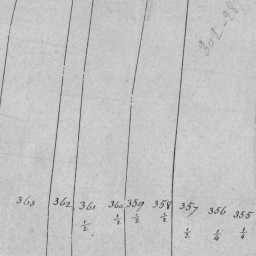 363 362 361 360 359 358 357 356 355
1/2 1/2 1/2 1/2 1/2 1/4 1/4